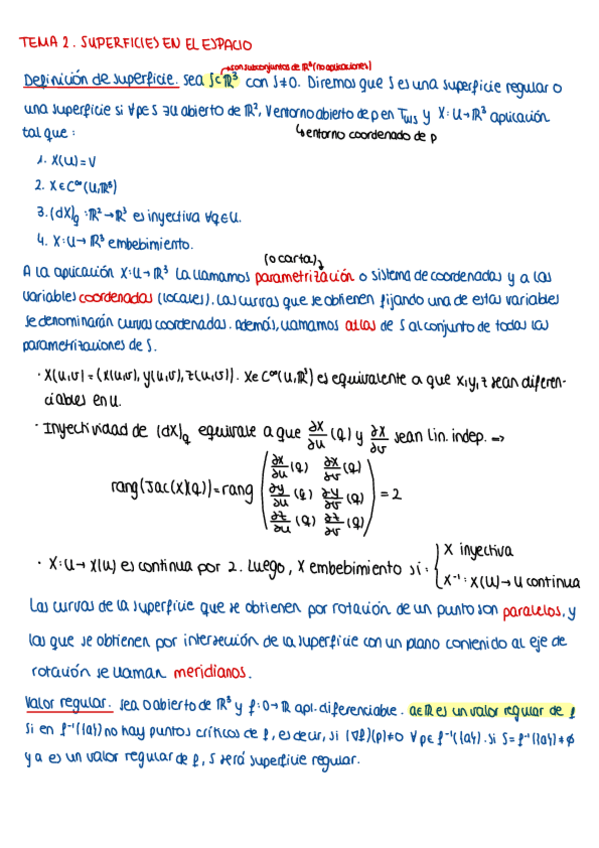 TEMA 2. SUPERFICIES EN EL ESPACIO
son subconjuntos de ℝ³ (no aplicaciones)
Definición de superficie. Sea S⊂ℝ³ con S≠0. Diremos que S es una superficie regular o
una superficie si ∀p∈S ∃U abierto de ℝ², V entorno abierto de p en T_u|S y X: U→ℝ³ aplicación
↳ entorno coordenado de p
tal que:
1. X(U)=V
2. X∈C^∞(U,ℝ³)
3. (dX)_q: ℝ²→ℝ³ es inyectiva ∀q∈U.
4. X: U→ℝ³ embebimiento.
(o carta)
A la aplicación X: U→ℝ³ la llamamos parametrización o sistema de coordenadas y a las
variables coordenadas (locales). Las curvas que se obtienen fijando una de estas variables
se denominarán curvas coordenadas. Además, llamamos atlas de S al conjunto de todas las
parametrizaciones de S.
· X(u,v)=(x(u,v), y(u,v), z(u,v)). X∈C^∞(U,ℝ³) es equivalente a que x,y,z sean diferen-
ciables en U.
· Inyectividad de (dX)_q equivale a que ∂X/∂u (q) y ∂X/∂v sean lin. indep. ⇒
rang(Jac(X)(q))=rang ( ∂x/∂u (q) ∂x/∂v (q)
∂y/∂u (q) ∂y/∂v (q)
∂z/∂u (q) ∂z/∂v (q) ) = 2
· X: U→X(U) es continua por 2. Luego, X embebimiento si: { X inyectiva
X⁻¹: X(U)→U continua
Las curvas de la superficie que se obtienen por rotación de un punto son paralelos, y
las que se obtienen por intersección de la superficie con un plano contenido al eje de
rotación se llaman meridianos.
Valor regular. Sea O abierto de ℝ³ y f: O→ℝ apl. diferenciable. a∈ℝ es un valor regular de f
si en f⁻¹({a}) no hay puntos críticos de f, es decir, si (∇f)(p)≠0 ∀p∈ f⁻¹({a}). Si S=f⁻¹({a})≠∅
y a es un valor regular de f, S será superficie regular.